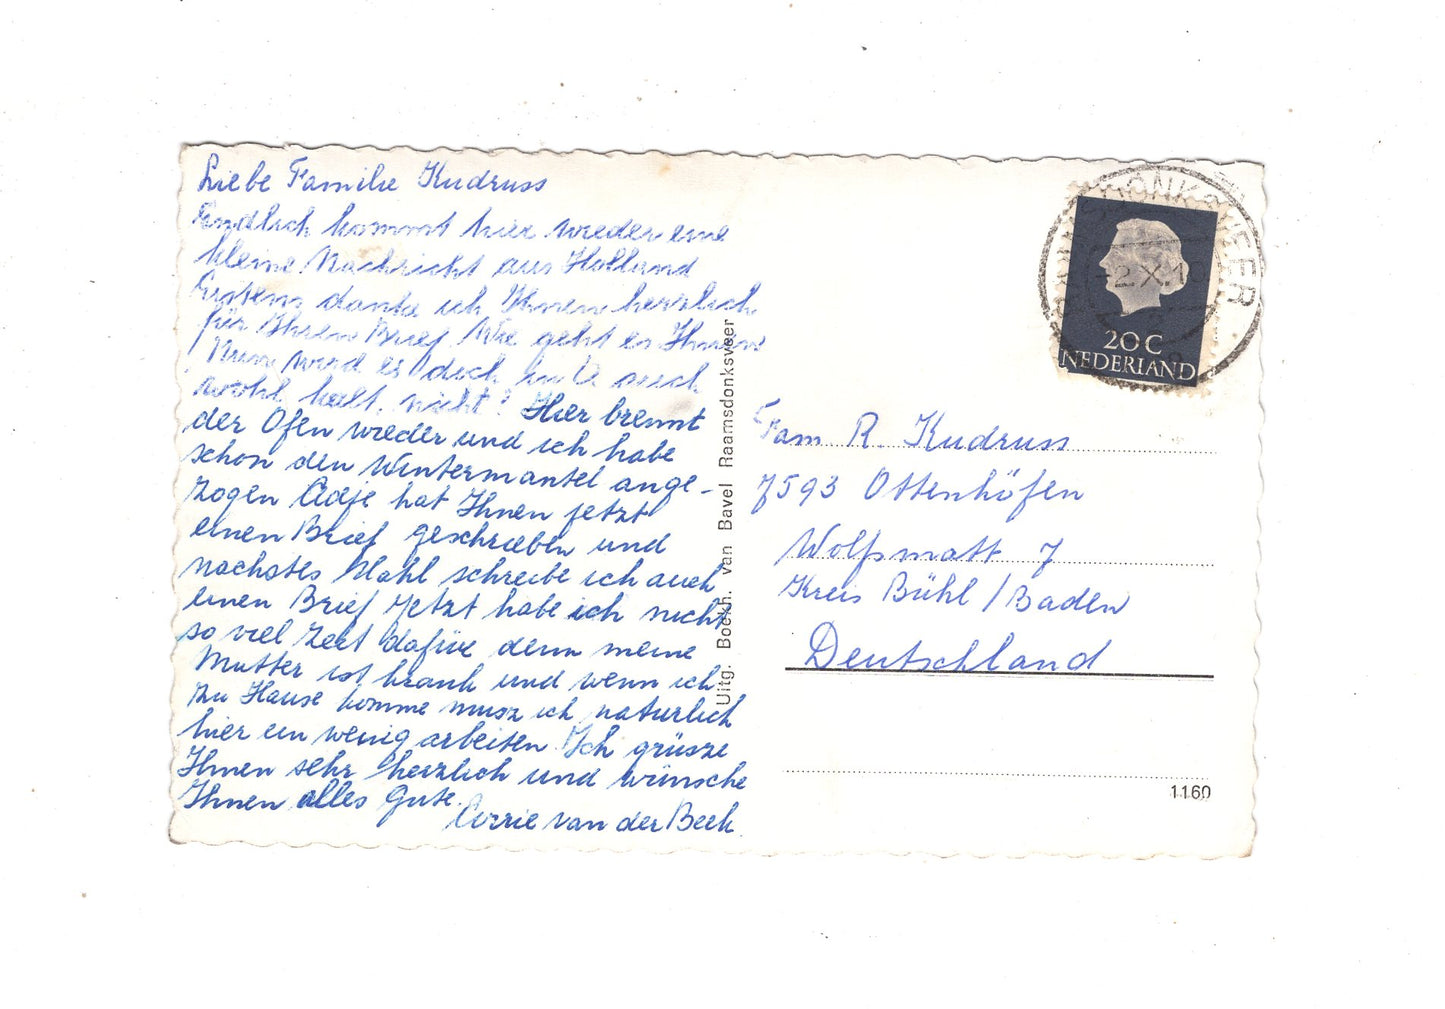 Liebe Familie Kudruss
Endlich kommt hier wieder eine
kleine Nachricht aus Holland
Erstens danke ich Ihnen herzlich
für Ihren Brief. Wie geht es Ihnen
Nun wird es doch auch
wohl kalt, nicht? Hier brennt
der Ofen wieder und ich habe
schon den Wintermantel ange-
zogen Adje hat Ihnen jetzt
einen Brief geschrieben und
nachstes Mahl schreibe ich auch
einen Brief Jetzt habe ich nicht
so viel Zeit dafür denn meine
Mutter ist krank und wenn ich
zu Hause komme musz ich naturlich
hier ein wenig arbeiten. Ich grüsze
Ihnen sehr herzlich und wünsche
Ihnen alles Gute.
Corrie van der Beek
Uitg. Boekh. van Bavel Raamsdonksveer
-2.X.10
20 C
NEDERLAND
Fam R. Kudruss
7593 Ottenhöfen
Wolfsmatt 7
Kreis Bühl / Baden
Deutschland
1160